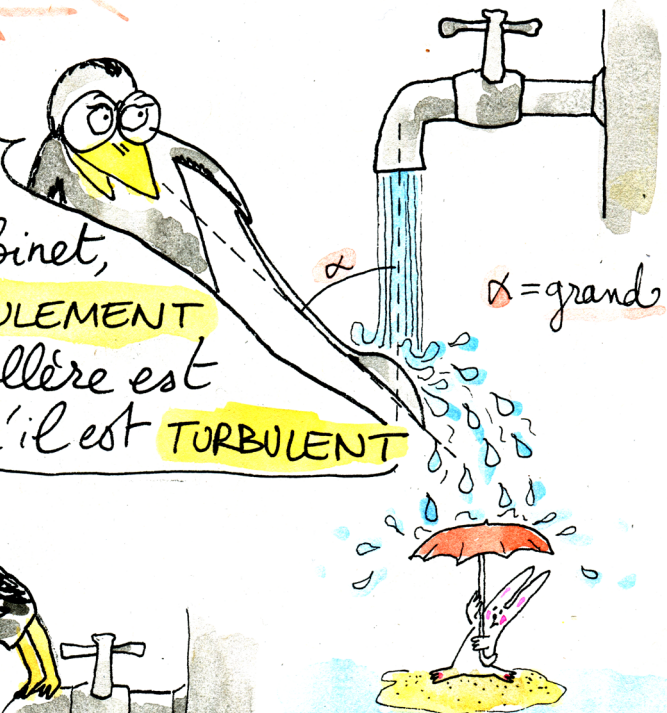 binet,
ULEMENT
llère est
'il est TURBULENT
α
α = grand